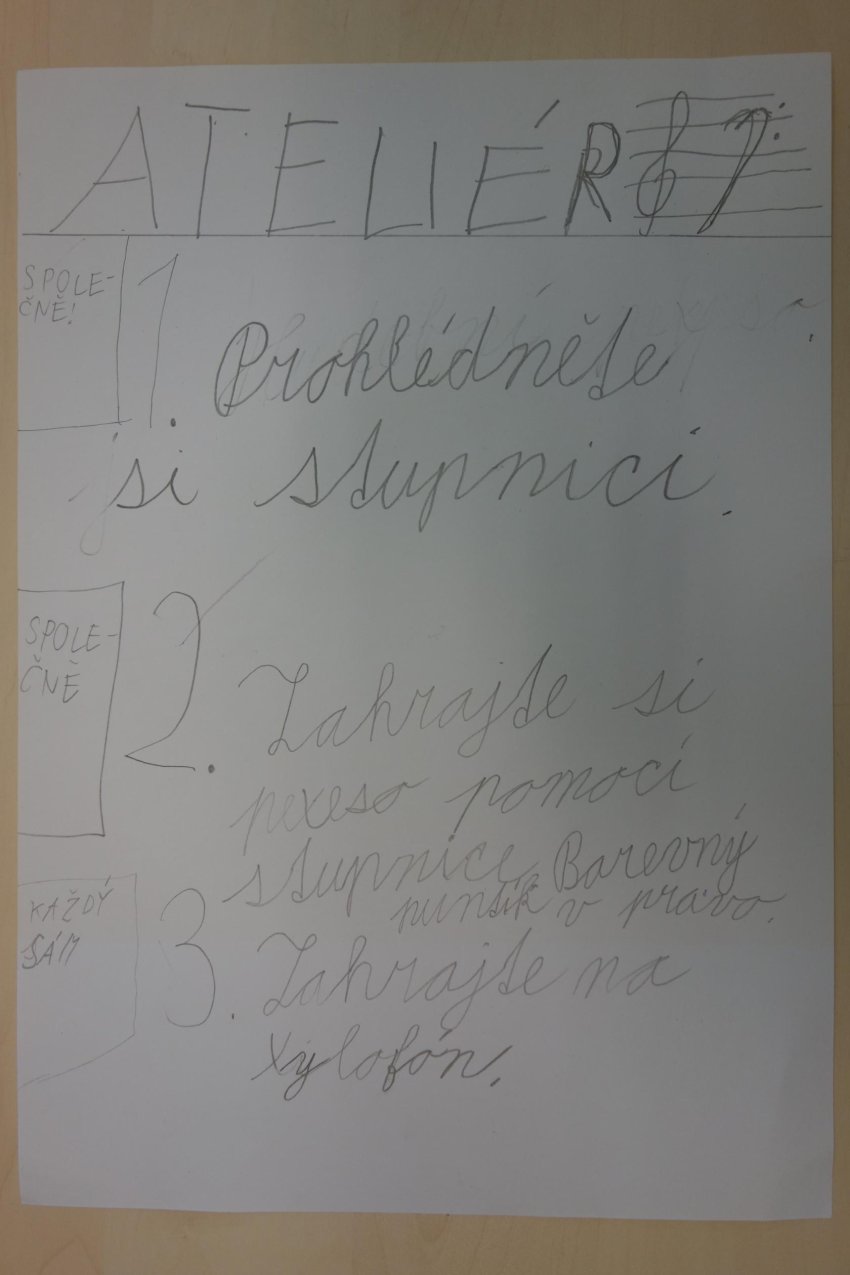 ATELIÉR
SPOLE-
ČNĚ!
1. Prohlédněte
si stupnici.
SPOLE-
ČNĚ
2. Zahrajte si
pexeso pomocí
stupnice. Barevný
puntík v pravo.
KAŽDÝ
SÁM
3. Zahrajte na
xylofón.